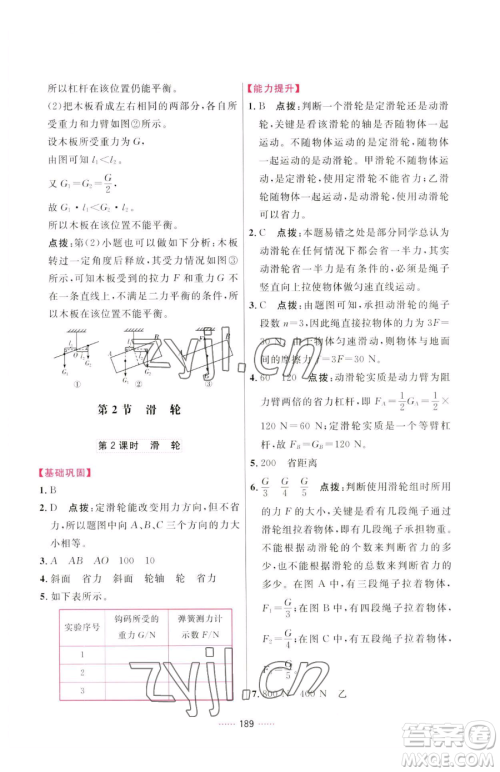 所以杠杆在该位置仍能平衡。
(2)把木板看成左右相同的两部分,各部分所受重力和力臂为图②所示,
设木板所受重力为G,
由图可知 l₁<l₂。
又 G₁=G₂=G/2
故 G₁·l₁<G₂·l₂。
所以木板在该位置不能平衡。
点拨:第(2)小题也可以如下分析:木板转过一定角度后释放,其受力如图③所示,可知受到的拉力F和重力G不在一条直线上,不满足二力平衡的条件,所以木板不能平衡。
① ② ③
第2节 滑 轮
第2课时 滑 轮
【基础巩固】
1. B
2. D 点拨:定滑轮能改变用力方向,但不省力,所以题图中向A、B、C三个方向的力大小相等。
3. A AB AO 100 10
4. 斜面 省力 斜面 轮轴 轮 省力
5. 如下表所示。
实验序号 钩码所受的重力G/N 弹簧测力计示数F/N
1
2
3
【能力提升】
1. B 点拨:判断一个滑轮是定滑轮还是动滑轮,关键是看该滑轮的轴是否随物体一起运动。不随物体一起运动的是定滑轮,随物体一起运动的是动滑轮。甲滑轮不随物体运动,是定滑轮,使用定滑轮不能省力;乙滑轮随物体一起运动,是动滑轮,使用动滑轮可以省力。
2. C 点拨:本题易错之处是部分同学总认为动滑轮在任何情况下都可以省一半力,其实动滑轮省一半力是有条件的,必须是绳子竖直向上使物体做匀速直线运动。
3. C 点拨:由题图可知,承担动滑轮的绳子段数n=3,因此绳直接拉物体的力为3F=30 N,由于物体做匀速运动,故物体与水平面间的摩擦力f=3F=30 N。
4. 60 120 点拨:动滑轮实质是动力臂为阻力臂两倍的省力杠杆,F=1/2 G_A=1/2×120 N=60 N;定滑轮实质是等臂杠杆,F=G_B=120 N。
5. 200 省距离
6. G/3 G/4 G/5 点拨:判断使用滑轮组时所用的力F的大小关键是看有几段绳子承担动滑轮组拉着物体,即有几段绳子拉着动滑轮。有几段绳子拉着物体,所用的力就是物重的几分之一。不能根据动滑轮的个数来判断省力的多少,也不能根据总滑轮的个数来判断省力的多少。在图A中,有三段绳子拉着物体,F₁=G/3;在图B中,有四段绳子拉着物体,F₂=G/4;在图C中,有五段绳子拉着物体,F₃=G/5。
7. 800 N 400 N 乙
189
zyjl.cn